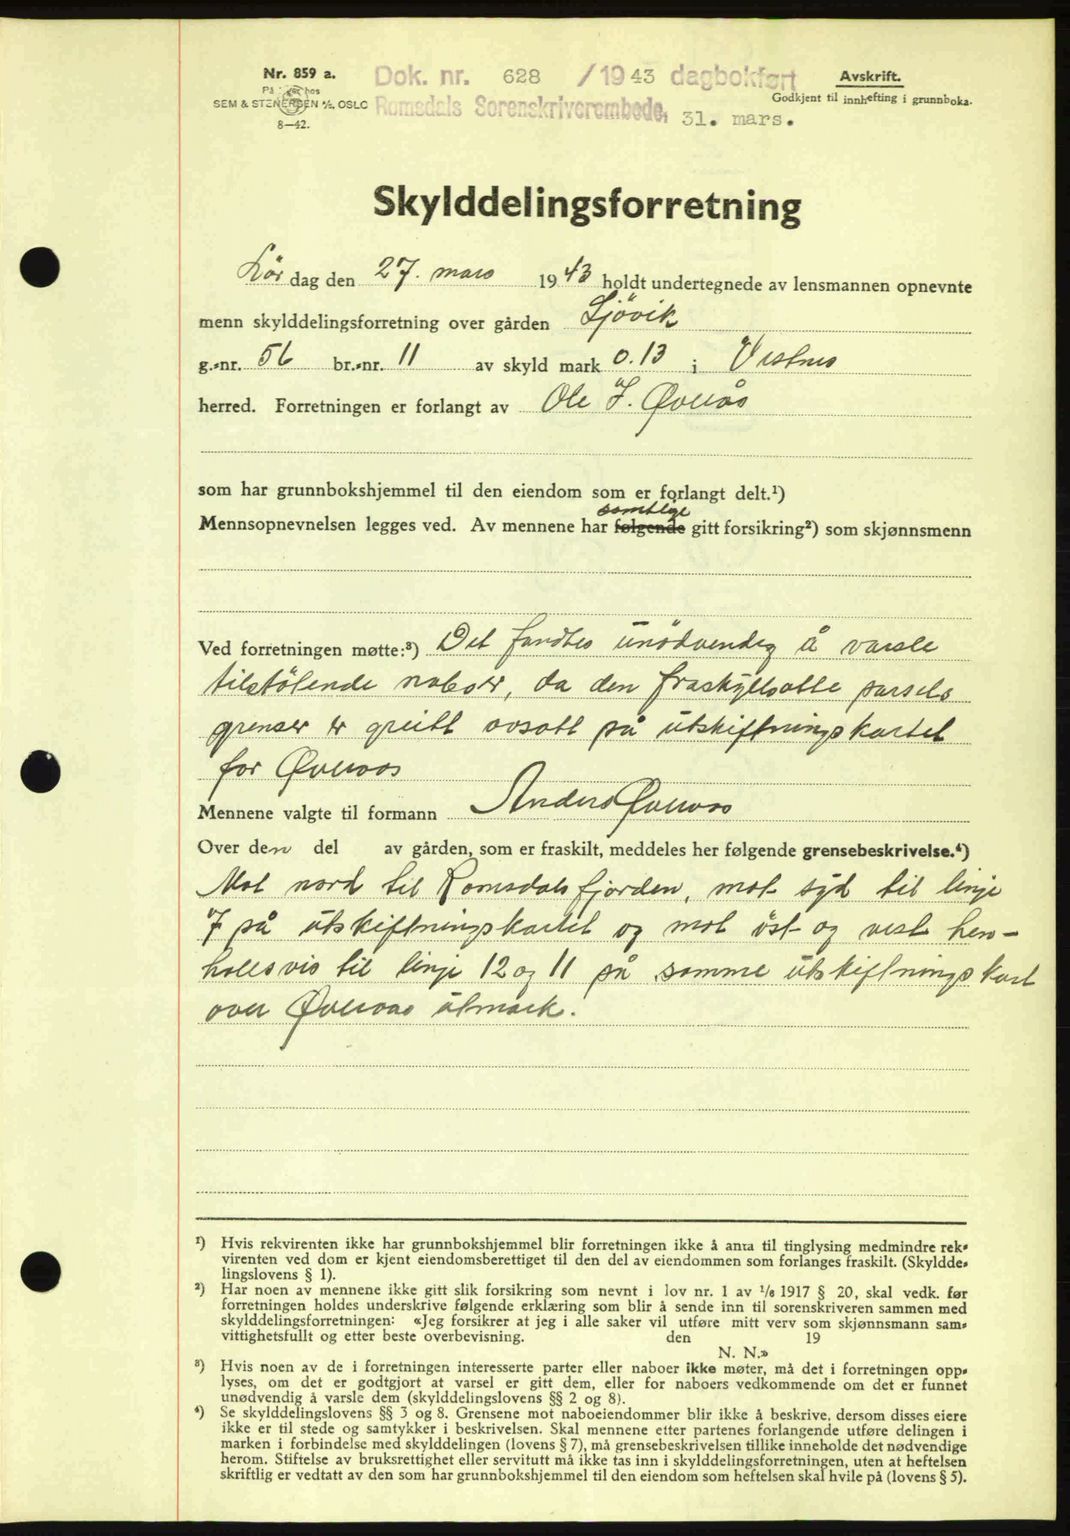 Nr. 859 a.
På hos
SEM & STENERSEN A/S. OSLO
8—42.
Dok. nr. 628 /1943 dagbokført
Romsdals Sorenskriverembede, 31. mars.
Avskrift.
Godkjent til innhefting i grunnboka.
Skylddelingsforretning
Lör dag den 27. mars 1943 holdt undertegnede av lensmannen opnevnte
menn skylddelingsforretning over gården Sjövik
g.-nr. 56 br.-nr. 11 av skyld mark 0.13 i Vestnes
herred. Forretningen er forlangt av Ole J. Øverås
som har grunnbokshjemmel til den eiendom som er forlangt delt.¹)
samtlige
Mennsopnevnelsen legges ved. Av mennene har følgende gitt forsikring²) som skjønnsmenn
Ved forretningen møtte:³) Det fandtes unödvendig å varsle
tilstötende naboer, da den fraskyldsatte parsels
grenser er greitt avsatt på utskiftningskartet
for Øveraas
Mennene valgte til formann Anders Øveraas
Over den del av gården, som er fraskilt, meddeles her følgende grensebeskrivelse.⁴)
Mot nord til Romsdalsfjorden, mot syd til linje
7 på utskiftningskartet og mot öst og vest hen-
holdsvis til linje 12 og 11 på samme utskiftningskart
over Øveraas utmark.
¹) Hvis rekvirenten ikke har grunnbokshjemmel blir forretningen ikke å anta til tinglysing medmindre rek-
virenten ved dom er kjent eiendomsberettiget til den del av eiendommen som forlanges fraskilt. (Skyldde-
lingslovens § 1).
²) Har noen av mennene ikke gitt slik forsikring som nevnt i lov nr. 1 av 1/6 1917 § 20, skal vedk. før
forretningen holdes underskrive følgende erklæring som blir å sende inn til sorenskriveren sammen med
skylddelingsforretningen: «Jeg forsikrer at jeg i alle saker vil utføre mitt verv som skjønnsmann sam-
vittighetsfullt og etter beste overbevisning. den 19
N. N.»
³) Hvis noen av de i forretningen interesserte parter eller naboer ikke møter, må det i forretningen opp-
lyses, om det er godtgjort at varsel er gitt dem, eller for naboers vedkommende om det er funnet
unødvendig å varsle dem (skylddelingslovens §§ 2 og 8).
⁴) Se skylddelingslovens §§ 3 og 8. Grensene mot naboeiendommer blir ikke å beskrive, dersom disses eiere
ikke er til stede og samtykker i beskrivelsen. Skal mennene etter partenes forlangende utføre delingen i
marken i forbindelse med skylddelingen (lovens § 7), må grensebeskrivelsen tillike inneholde det nødvendige
herom. Stiftelse av bruksrettighet eller servitutt må ikke tas inn i skylddelingsforretningen, uten at heftelsen
skriftlig er vedtatt av den som har grunnbokshjemmel til den eiendom som heftelsen skal hvile på (lovens § 5).